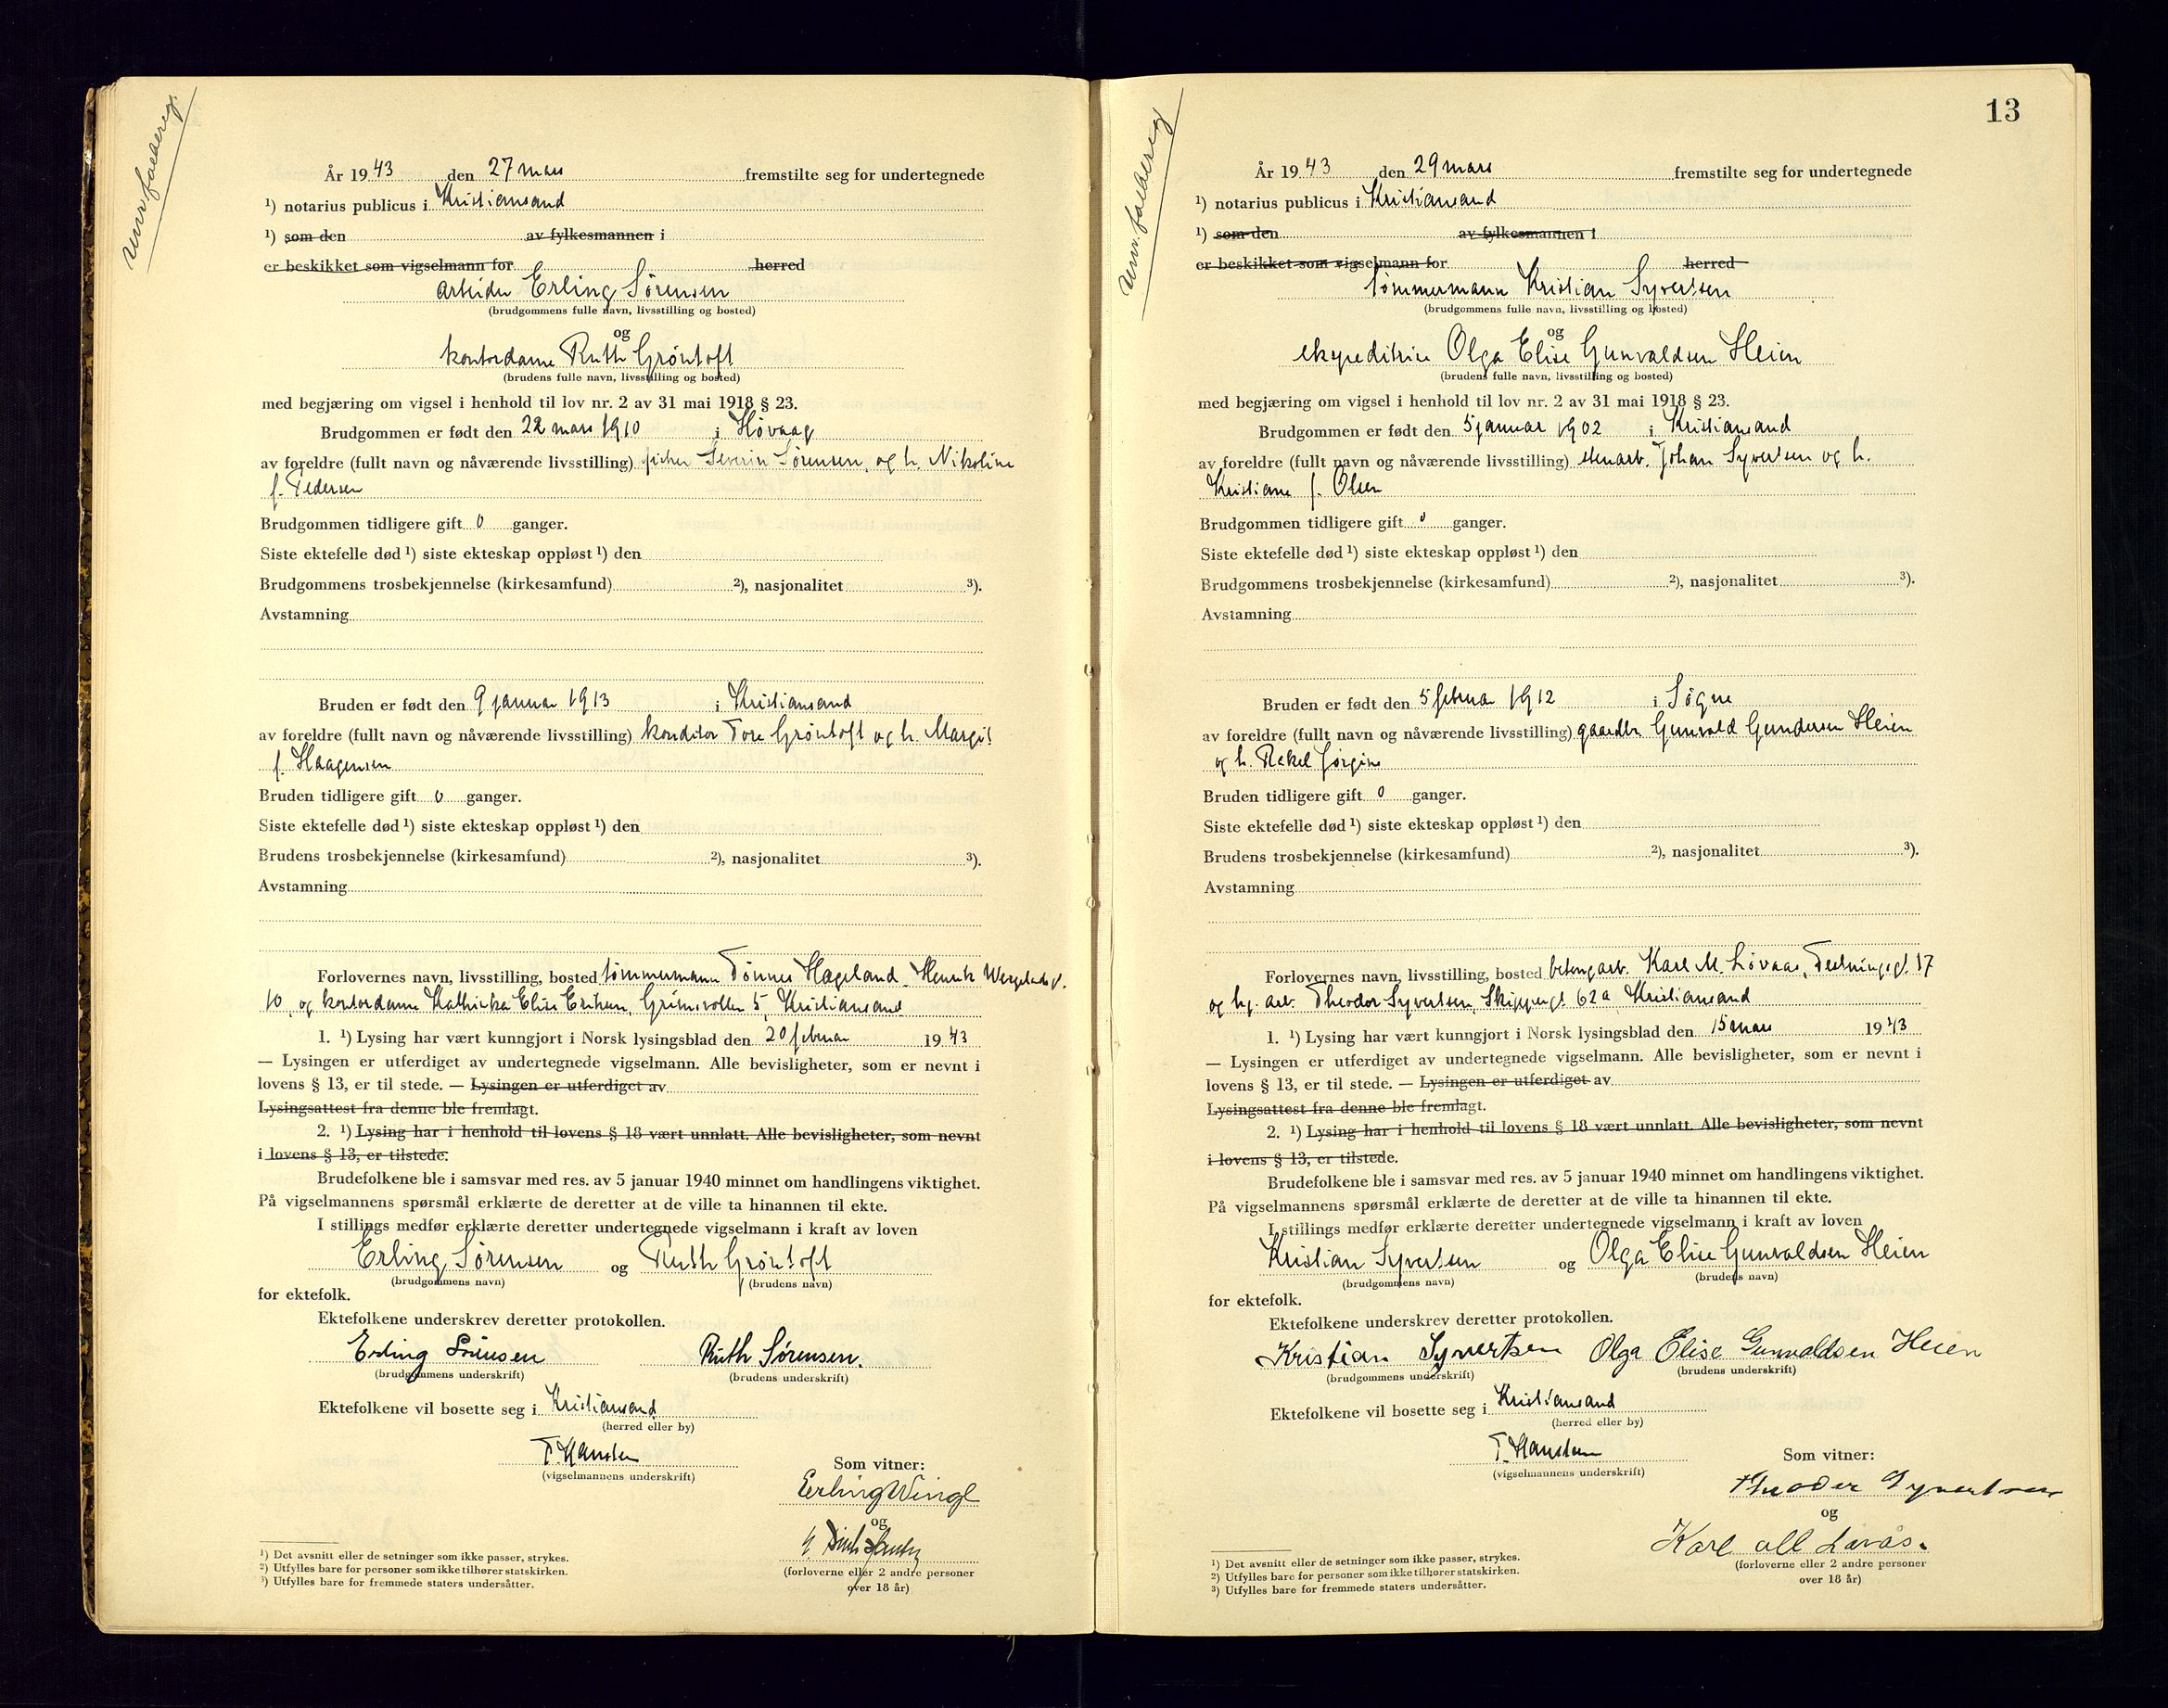 År 19 43 den 27 mars fremstilte seg for undertegnede
¹) notarius publicus i Kristiansand
¹) som den av fylkesmannen i
er beskikket som vigselmann for herred
arbeider Erling Sörensen
(brudgommens fulle navn, livsstilling og bosted)
og
kontordame Ruth Gröntoft
(brudens fulle navn, livsstilling og bosted)
med begjæring om vigsel i henhold til lov nr. 2 av 31 mai 1918 § 23.
Brudgommen er født den 22 mars 1910 i Hövaag
av foreldre (fullt navn og nåværende livsstilling) fisker Severin Sörensen, og h. Nikoline
f. Pedersen
Brudgommen tidligere gift 0 ganger.
Siste ektefelle død ¹) siste ekteskap oppløst ¹) den
Brudgommens trosbekjennelse (kirkesamfund) ²), nasjonalitet ³).
Avstamning
Bruden er født den 9 januar 1913 i Kristiansand
av foreldre (fullt navn og nåværende livsstilling) konditor Tore Gröntoft og h. Margit
f. Haagensen
Bruden tidligere gift 0 ganger.
Siste ektefelle død ¹) siste ekteskap oppløst ¹) den
Brudens trosbekjennelse (kirkesamfund) ²), nasjonalitet ³).
Avstamning
Forlovernes navn, livsstilling, bosted tömmermann Tönnes Hageland. Henrik Wergelandsgt.
10, og kontordame Kathinka Elise Eriksen, Grimsvollen 5, Kristiansand
1. ¹) Lysing har vært kunngjort i Norsk lysingsblad den 20 februar 19 43
— Lysingen er utferdiget av undertegnede vigselmann. Alle bevisligheter, som er nevnt i
lovens § 13, er til stede. — Lysingen er utferdiget av
Lysingsattest fra denne ble fremlagt.
2. ¹) Lysing har i henhold til lovens § 18 vært unnlatt. Alle bevisligheter, som nevnt
i lovens § 13, er tilstede.
Brudefolkene ble i samsvar med res. av 5 januar 1940 minnet om handlingens viktighet.
På vigselmannens spørsmål erklærte de deretter at de ville ta hinannen til ekte.
I stillings medfør erklærte deretter undertegnede vigselmann i kraft av loven
Erling Sörensen og Ruth Gröntoft
(brudgommens navn) (brudens navn)
for ektefolk.
Ektefolkene underskrev deretter protokollen.
Erling Sörensen Ruth Sörensen.
(brudgommens underskrift) (brudens underskrift)
Ektefolkene vil bosette seg i Kristiansand
(herred eller by)
T. Hansten
(vigselmannens underskrift)
Som vitner:
Erling Wingl
og
(forloverne eller 2 andre personer
over 18 år)
¹) Det avsnitt eller de setninger som ikke passer, strykes.
²) Utfylles bare for personer som ikke tilhører statskirken.
³) Utfylles bare for fremmede staters undersåtter.
13
År 19 43 den 29 mars fremstilte seg for undertegnede
¹) notarius publicus i Kristiansand
¹) som den av fylkesmannen i
er beskikket som vigselmann for herred
tömmermann Kristian Syvertsen
(brudgommens fulle navn, livsstilling og bosted)
og
ekspeditrise Olga Elise Gunvaldsen Heien
(brudens fulle navn, livsstilling og bosted)
med begjæring om vigsel i henhold til lov nr. 2 av 31 mai 1918 § 23.
Brudgommen er født den 5 januar 1902 i Kristiansand
av foreldre (fullt navn og nåværende livsstilling) stenarb. Johan Syvertsen og h.
Kristiane f. Olsen
Brudgommen tidligere gift 0 ganger.
Siste ektefelle død ¹) siste ekteskap oppløst ¹) den
Brudgommens trosbekjennelse (kirkesamfund) ²), nasjonalitet ³).
Avstamning
Bruden er født den 5 februar 1912 i Sögne
av foreldre (fullt navn og nåværende livsstilling) gaardbr. Gunvald Gundersen Heien
og h. Rakel Jörgine
Bruden tidligere gift 0 ganger.
Siste ektefelle død ¹) siste ekteskap oppløst ¹) den
Brudens trosbekjennelse (kirkesamfund) ²), nasjonalitet ³).
Avstamning
Forlovernes navn, livsstilling, bosted betongarb. Karl M. Lövaas, 17
og hj. arb. Theodor Syvertsen, Skippergt. 62a Kristiansand
1. ¹) Lysing har vært kunngjort i Norsk lysingsblad den 15 mars 19 43
— Lysingen er utferdiget av undertegnede vigselmann. Alle bevisligheter, som er nevnt i
lovens § 13, er til stede. — Lysingen er utferdiget av
Lysingsattest fra denne ble fremlagt.
2. ¹) Lysing har i henhold til lovens § 18 vært unnlatt. Alle bevisligheter, som nevnt
i lovens § 13, er tilstede.
Brudefolkene ble i samsvar med res. av 5 januar 1940 minnet om handlingens viktighet.
På vigselmannens spørsmål erklærte de deretter at de ville ta hinannen til ekte.
I stillings medfør erklærte deretter undertegnede vigselmann i kraft av loven
Kristian Syvertsen og Olga Elise Gunvaldsen Heien
(brudgommens navn) (brudens navn)
for ektefolk.
Ektefolkene underskrev deretter protokollen.
Kristian Syvertsen Olga Elise Gunvaldsen Heien
(brudgommens underskrift) (brudens underskrift)
Ektefolkene vil bosette seg i Kristiansand
(herred eller by)
T. Hansten
(vigselmannens underskrift)
Som vitner:
Theodor Syvertsen
og
Karl M Lövås.
(forloverne eller 2 andre personer
over 18 år)
¹) Det avsnitt eller de setninger som ikke passer, strykes.
²) Utfylles bare for personer som ikke tilhører statskirken.
³) Utfylles bare for fremmede staters undersåtter.